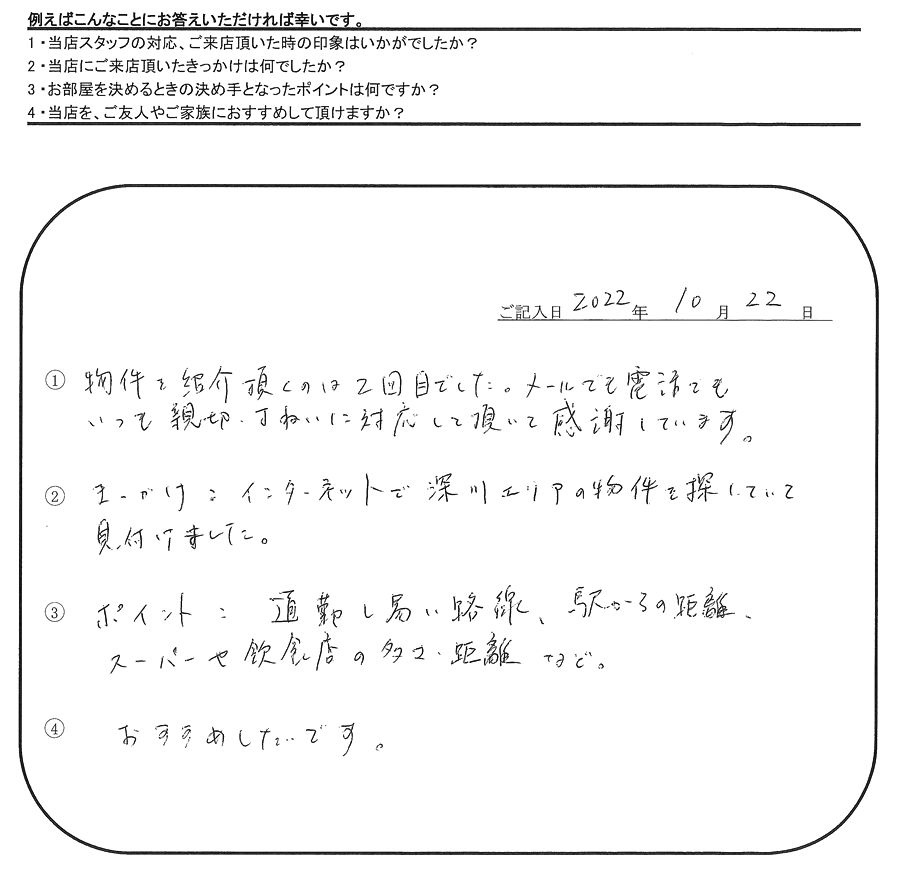 例えばこんなことにお答えいただければ幸いです。
1・当店スタッフの対応、ご来店頂いた時の印象はいかがでしたか？
2・当店にご来店頂いたきっかけは何でしたか？
3・お部屋を決めるときの決め手となったポイントは何ですか？
4・当店を、ご友人やご家族におすすめして頂けますか？
ご記入日 2022 年 10 月 22 日
① 物件を紹介頂くのは2回目でした。メールでも電話でも
いつも親切・丁ねいに対応して頂いて感謝しています。
② きっかけ：インターネットで深川エリアの物件を探していて
見付けました。
③ ポイント：通勤し易い路線、駅からの距離、
スーパーや飲食店の多さ・距離など。
④ おすすめしたいです。